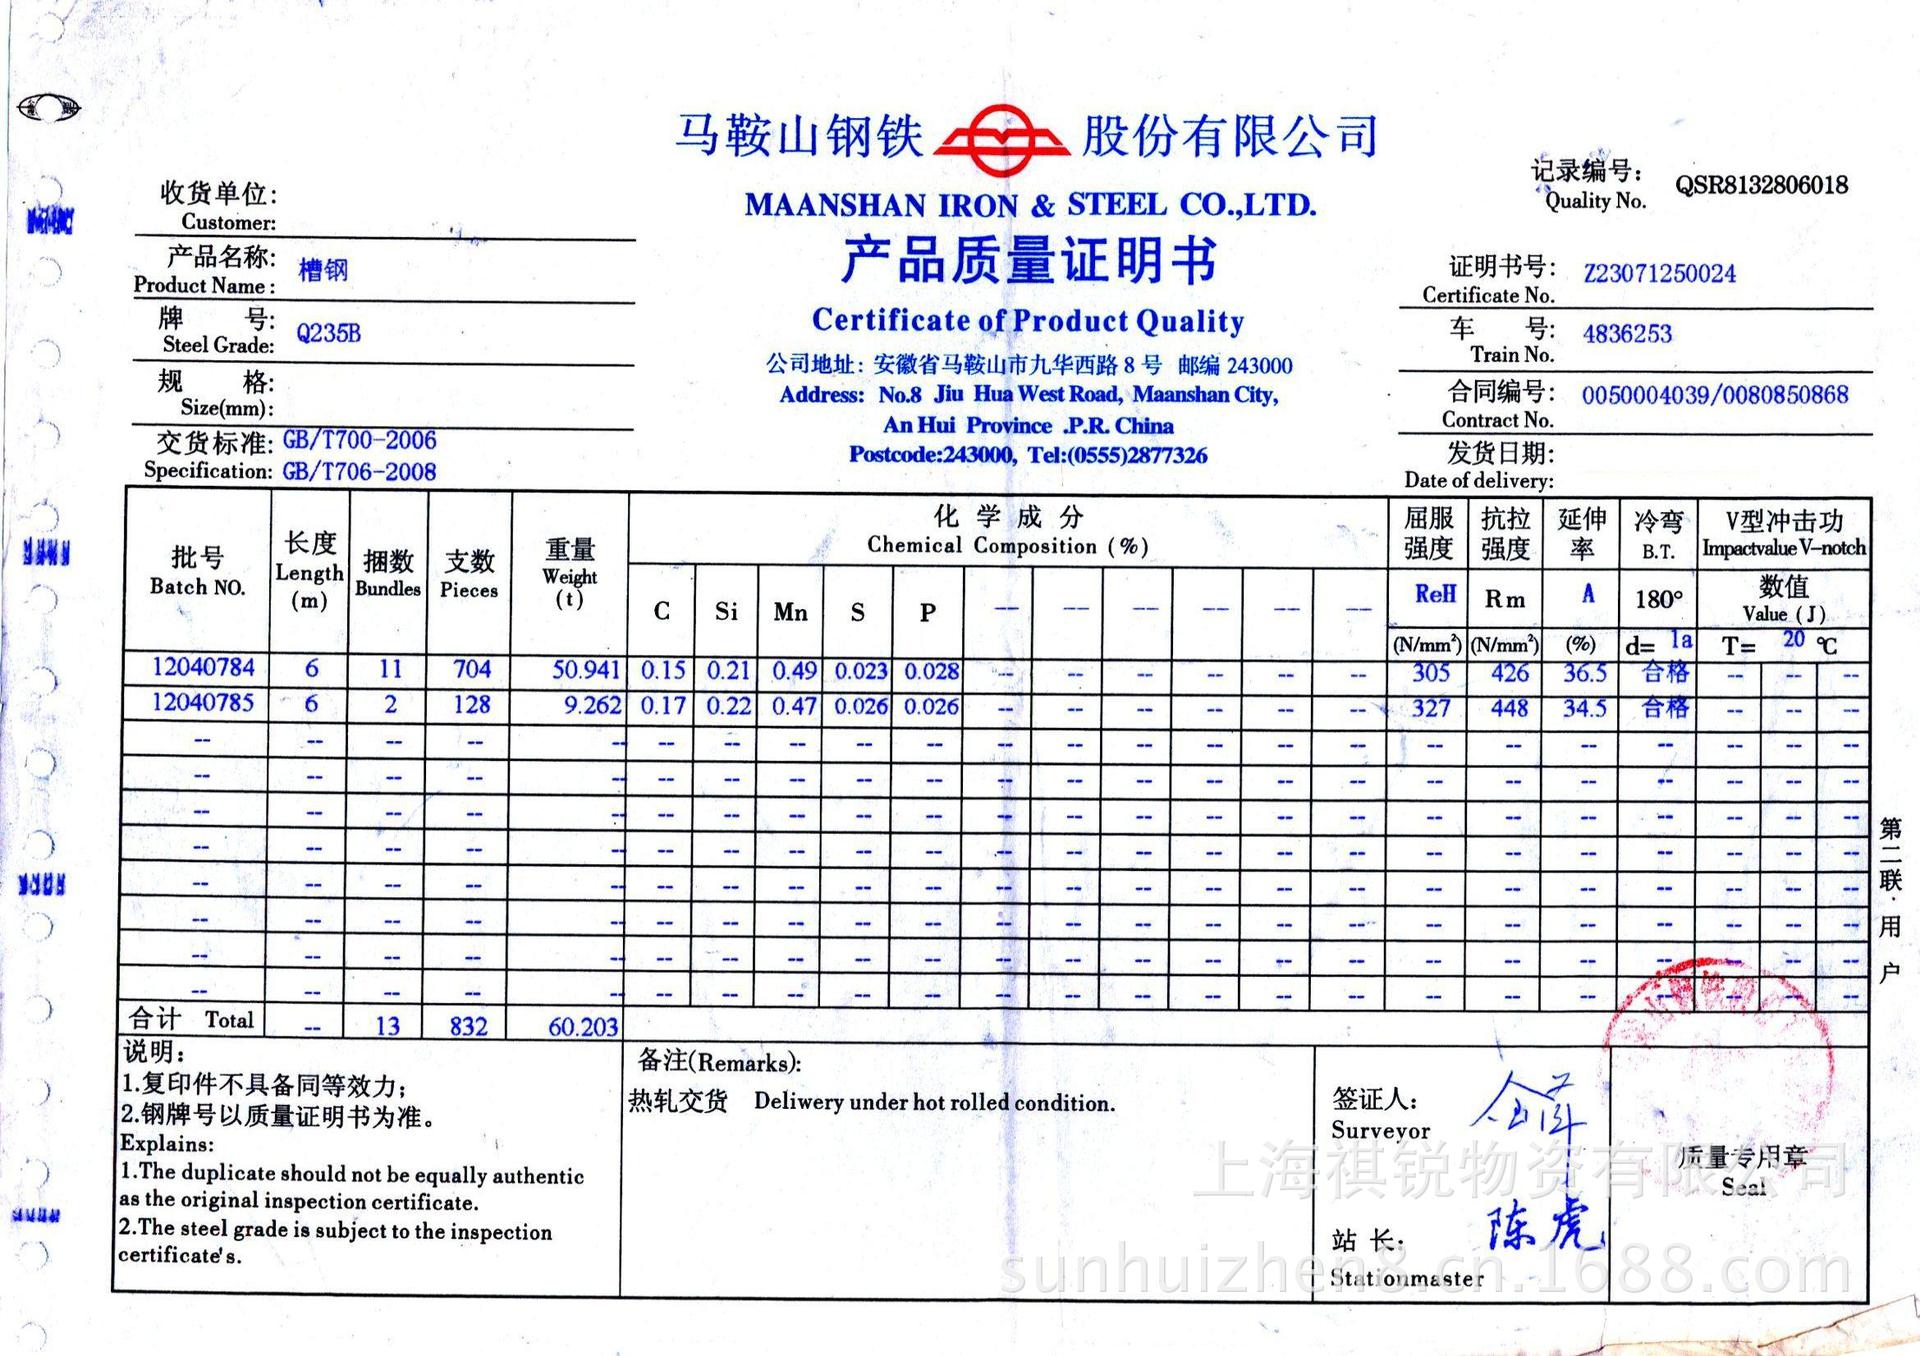 马鞍山钢铁 股份有限公司
MAANSHAN IRON & STEEL CO.,LTD.
产品质量证明书
Certificate of Product Quality
公司地址：安徽省马鞍山市九华西路8号 邮编 243000
Address: No.8 Jiu Hua West Road, Maanshan City,
An Hui Province .P.R. China
Postcode:243000, Tel:(0555)2877326
记录编号: QSR8132806018
Quality No.
收货单位:
Customer:
产品名称: 槽钢
Product Name:
牌 号: Q235B
Steel Grade:
规 格:
Size(mm):
交货标准: GB/T700-2006
Specification: GB/T706-2008
证明书号: Z23071250024
Certificate No.
车 号: 4836253
Train No.
合同编号: 0050004039/0080850868
Contract No.
发货日期:
Date of delivery:
批号 长度 捆数 支数 重量 化学成分 屈服强度 抗拉强度 延伸率 冷弯 V型冲击功
Batch NO. Length (m) Bundles Pieces Weight (t) Chemical Composition (%) B.T. Impactvalue V-notch
C Si Mn S P -- -- -- -- -- -- ReH Rm A 180° 数值 Value (J)
(N/mm²) (N/mm²) (%) d= 1a T= 20 ℃
12040784 6 11 704 50.941 0.15 0.21 0.49 0.023 0.028 -- -- -- -- -- -- 305 426 36.5 合格 -- -- --
12040785 6 2 128 9.262 0.17 0.22 0.47 0.026 0.026 -- -- -- -- -- -- 327 448 34.5 合格 -- -- --
-- -- -- -- -- -- -- -- -- -- -- -- -- -- -- -- -- -- -- -- -- -- --
-- -- -- -- -- -- -- -- -- -- -- -- -- -- -- -- -- -- -- -- -- -- --
-- -- -- -- -- -- -- -- -- -- -- -- -- -- -- -- -- -- -- -- -- -- --
-- -- -- -- -- -- -- -- -- -- -- -- -- -- -- -- -- -- -- -- -- -- --
-- -- -- -- -- -- -- -- -- -- -- -- -- -- -- -- -- -- -- -- -- -- --
-- -- -- -- -- -- -- -- -- -- -- -- -- -- -- -- -- -- -- -- -- -- --
-- -- -- -- -- -- -- -- -- -- -- -- -- -- -- -- -- -- -- -- -- -- --
-- -- -- -- -- -- -- -- -- -- -- -- -- -- -- -- -- -- -- -- -- -- --
合计 Total -- 13 832 60.203
第二联·用户
说明:
1.复印件不具备同等效力;
2.钢牌号以质量证明书为准。
Explains:
1.The duplicate should not be equally authentic
as the original inspection certificate.
2.The steel grade is subject to the inspection
certificate's.
备注(Remarks):
热轧交货 Deliwery under hot rolled condition.
签证人:
Surveyor
站 长: 陈虎
Stationmaster
质量专用章
Seal
上海祺锐物资有限公司
sunhuizhen8.cn.1688.com